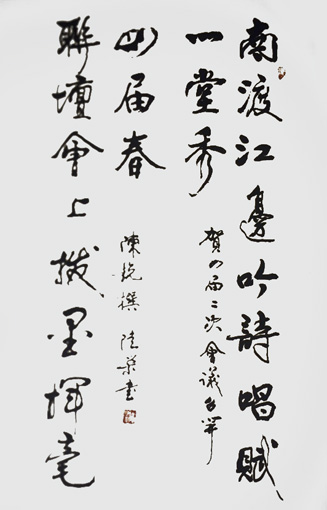 南渡江邊吟詩唱賦
一堂秀
賀四届二次會議召開
聯壇會上撥墨揮毫
四届春
陳 撰 陸 書